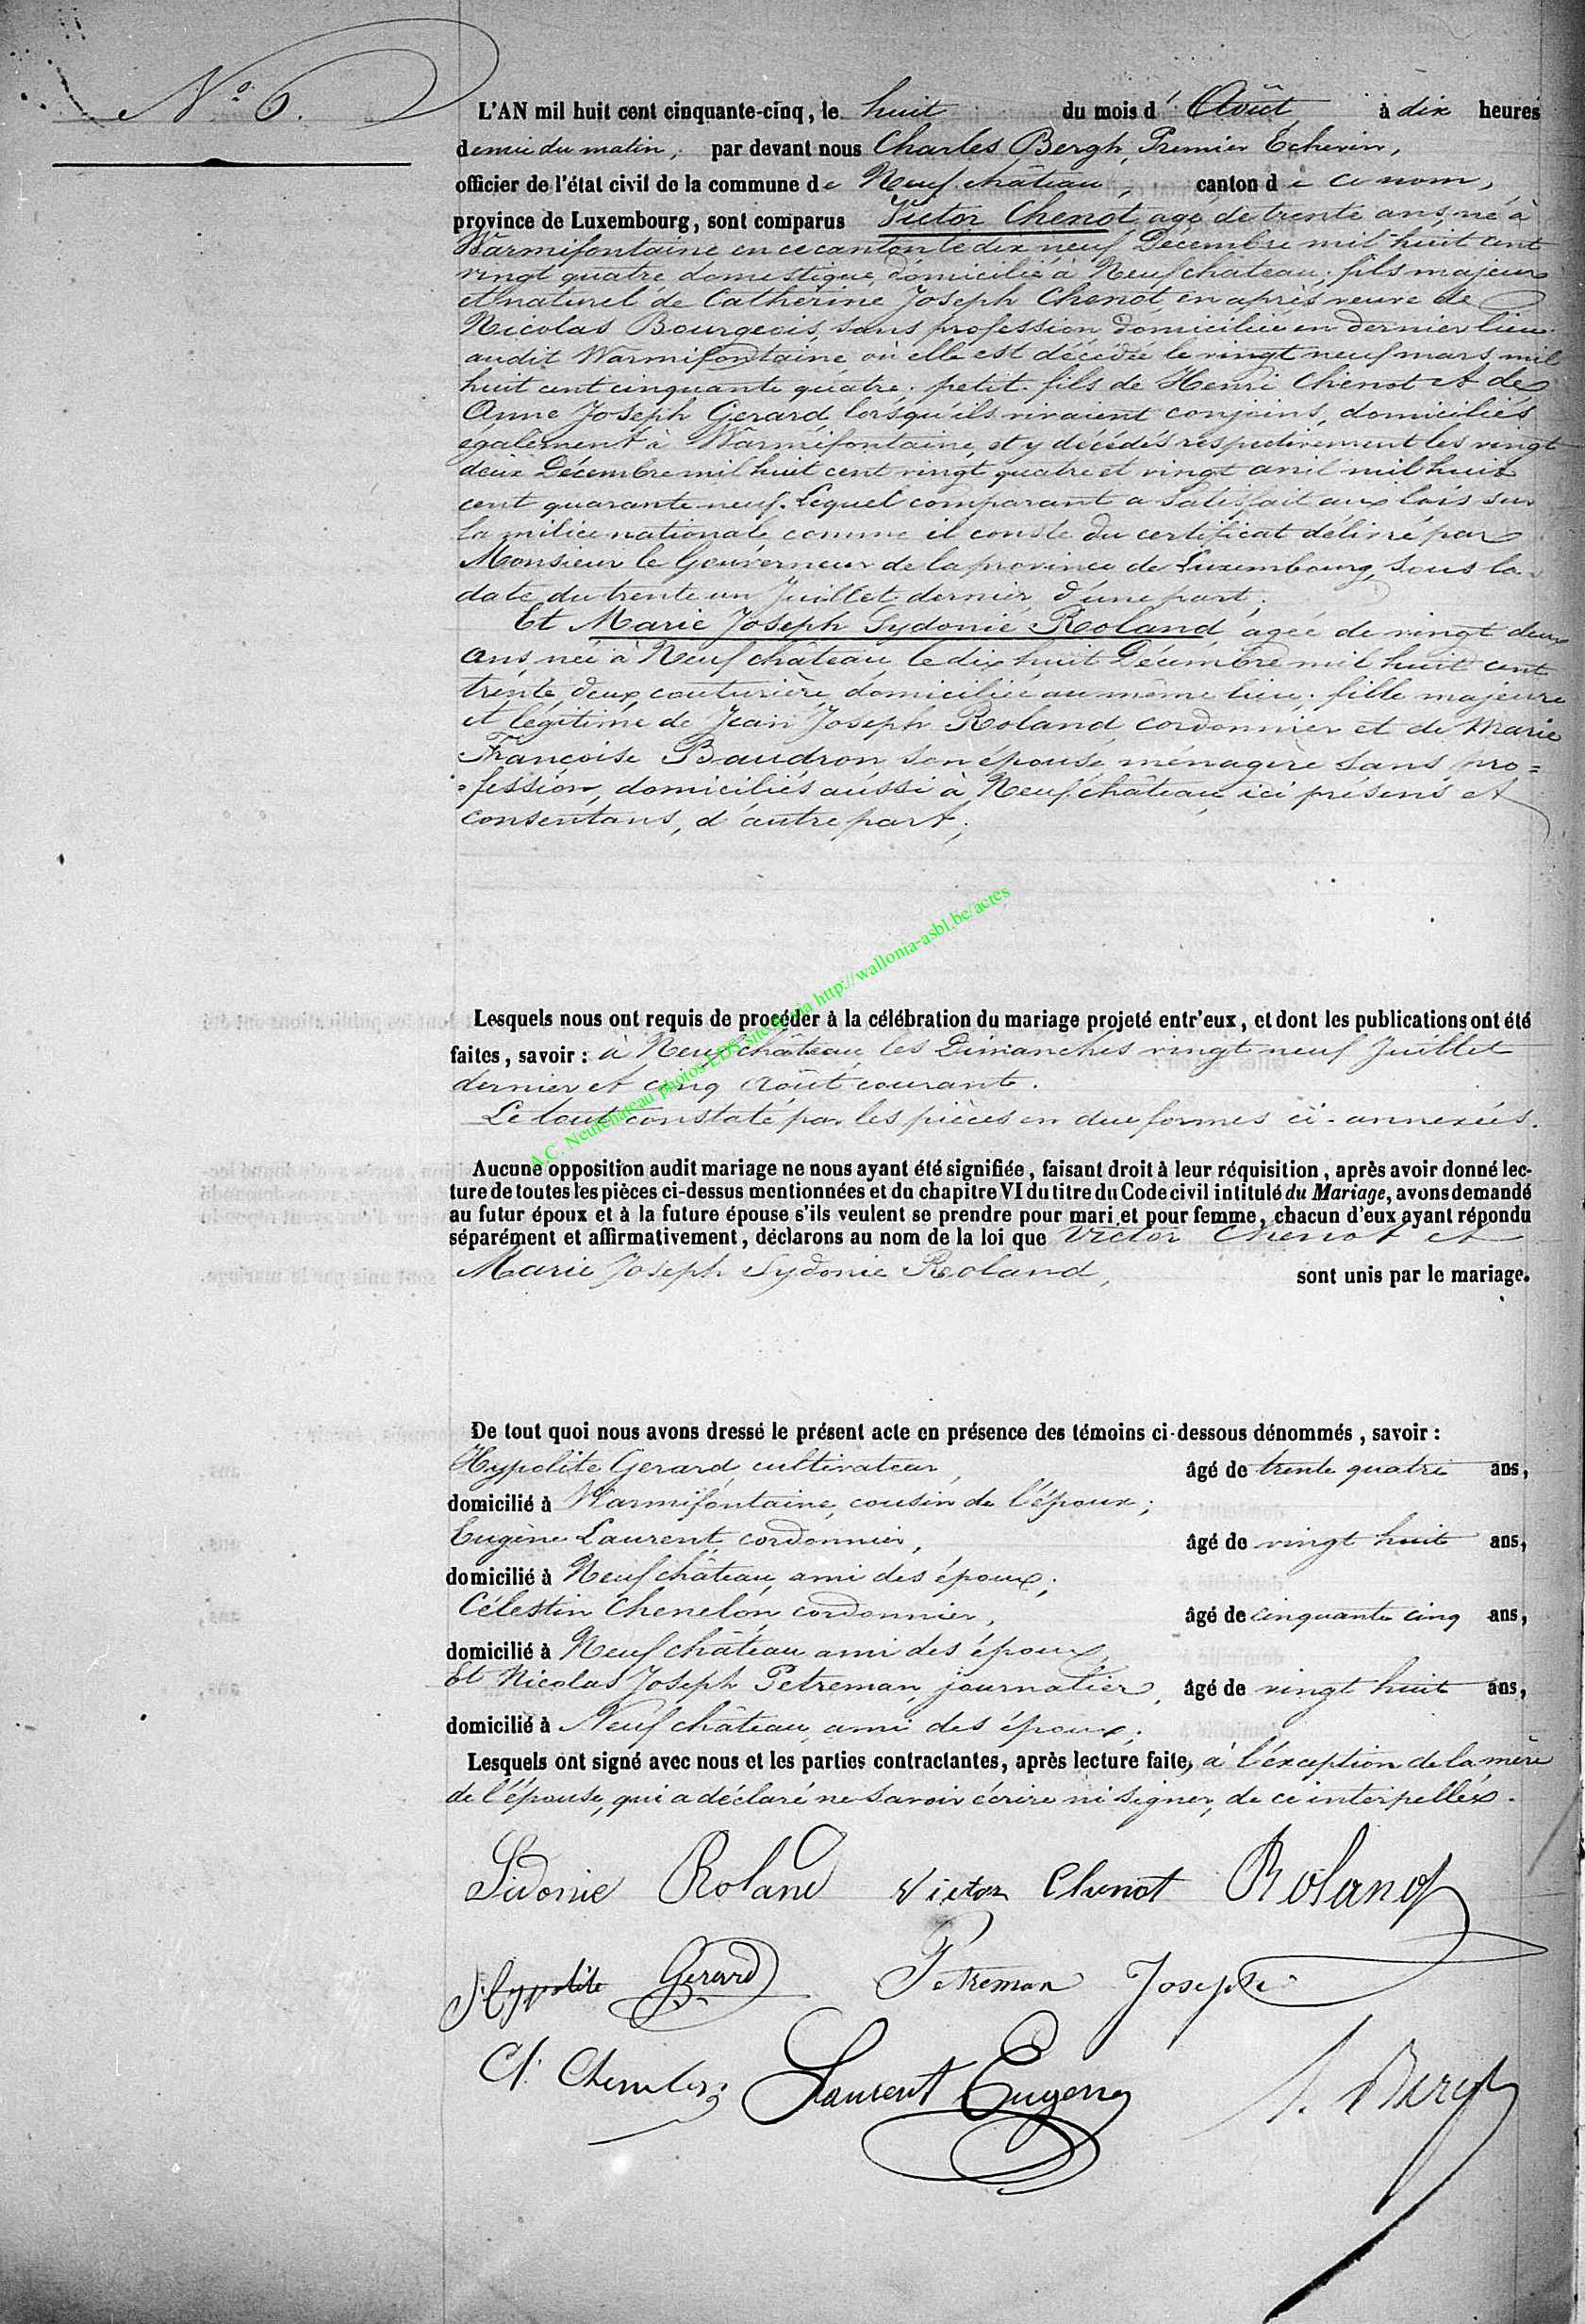 N.° 6.
L'AN mil huit cent cinquante-cinq, le huit du mois d' Août à dix heures
demie du matin, par devant nous Charles Bergh, Premier Echevin,
officier de l'état civil de la commune de Neufchâteau, canton de ce nom,
province de Luxembourg, sont comparus Victor Chenot agé de trente ans, né à
Warmifontaine en ce canton le dix neuf Décembre mil huit cent
vingt quatre domestique, domicilié à Neufchâteau; fils majeur
et naturel de Catherine Joseph Chenot, en après veuve de
Nicolas Bourgeois, sans profession domiciliée en dernier lieu
audit Warmifontaine où elle est décédée le vingt neuf mars mil
huit cent cinquante quatre; petit-fils de Henri Chenot et de
Anne Joseph Gerard, lorsqu'ils vivaient conjoins, domiciliés
egalement à Warmifontaine, et y décédés respectivement les vingt
deux Décembre mil huit cent vingt quatre et vingt avril mil huit
cent quarante neuf. Lequel comparant a satisfait aux lois sur
la milice nationale comme il conste du certificat délivré par
Monsieur le Gouverneur de la province de Luxembourg, sous la
date du trente un Juillet dernier, d'une part;
Et Marie Joseph Sydonie Roland, agée de vingt deux
ans, née à Neufchâteau, le dix huit Décembre mil huit cent
trente deux, couturière, domiciliée au même lieu; fille majeure
et légitime de Jean Joseph Roland cordonnier et de Marie
Françoise Baudron son épouse ménagère sans pro=
fession, domiciliés aussi à Neufchâteau ici présens et
consentans, d'autre part;
Lesquels nous ont requis de procéder à la célébration du mariage projeté entr'eux, et dont les publications ont été
faites, savoir: à Neufchâteau les Dimanches vingt neuf Juillet
dernier et cinq Août courant.
Le tout constaté par les pièces en due formes ci-annexées.
A.C. Neufchateau photos EDS sites via http://wallonia-asbl.be/actes
Aucune opposition audit mariage ne nous ayant été signifiée, faisant droit à leur réquisition, après avoir donné lec-
ture de toutes les pièces ci-dessus mentionnées et du chapitre VI du titre du Code civil intitulé du Mariage, avons demandé
au futur époux et à la future épouse s'ils veulent se prendre pour mari et pour femme, chacun d'eux ayant répondu
séparément et affirmativement, déclarons au nom de la loi que Victor Chenot et
Marie Joseph Sydonie Roland, sont unis par le mariage.
De tout quoi nous avons dressé le présent acte en présence des témoins ci-dessous dénommés, savoir:
Hypolite Gerard, cultivateur, âgé de trente quatre ans,
domicilié à Warmifontaine, cousin de l'époux;
Eugène Laurent, cordonnier, âgé de vingt huit ans,
domicilié à Neufchâteau, ami des époux;
Célestin Chenelon cordonnier, âgé de cinquante cinq ans,
domicilié à Neufchâteau ami des époux
Et Nicolas Joseph Petreman, journalier, âgé de vingt huit ans,
domicilié à Neufchâteau, ami des époux;
Lesquels ont signé avec nous et les parties contractantes, après lecture faite, à l'éxception de la mère
de l'épouse, qui a déclaré ne savoir écrire ni signer, de ce interpellés.
Sidonie Roland Victor Chenot Roland
Hypolite Gerard Petreman Joseph
Ct. Chenelon Laurent Eugene Bergh